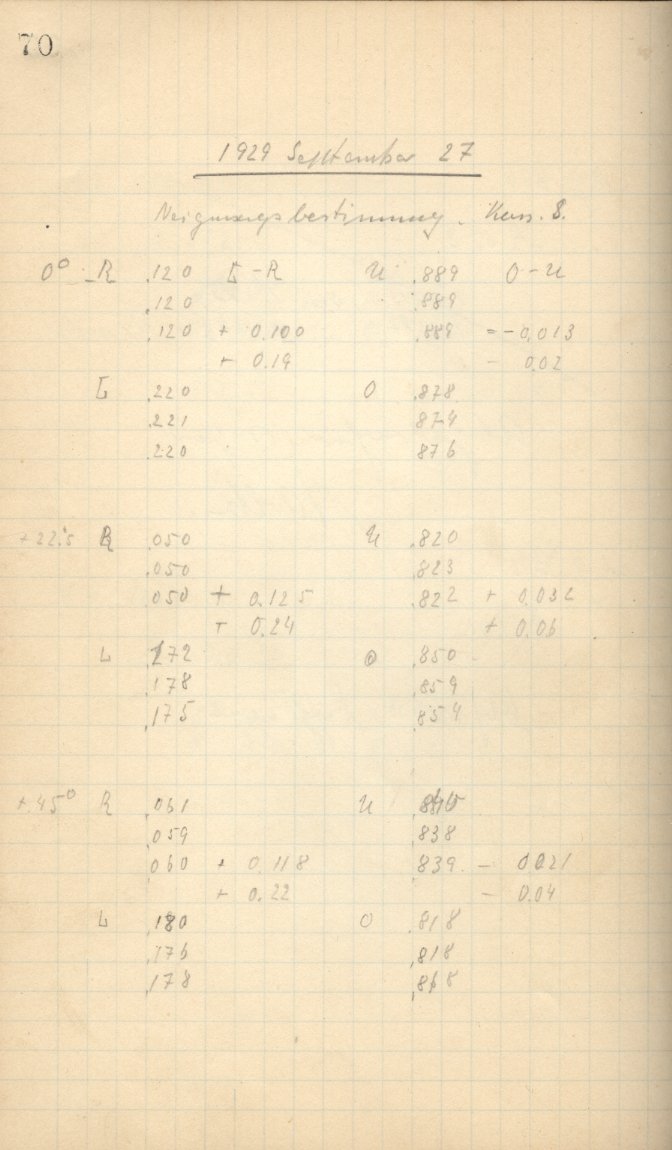 70
1929 September 27
Neigungsbestimmung. Kass. 8.
0° R .120 L - R U .889 O - U
.120 .889
.120 + 0.100 .889 = - 0.013
+ 0.19 - 0.02
L .220 O .878
.221 .874
.220 876
+ 22.°5 R .050 U .820
.050 .823
.050 + 0.125 .822 + 0.032
+ 0.24 + 0.06
L 172 O .850
.178 .859
.175 .854
+ 45° R .061 U
.059 .838
060 + 0.118 839 - 0.021
+ 0.22 - 0.04
L .180 O .818
.176 .818
.178 .818